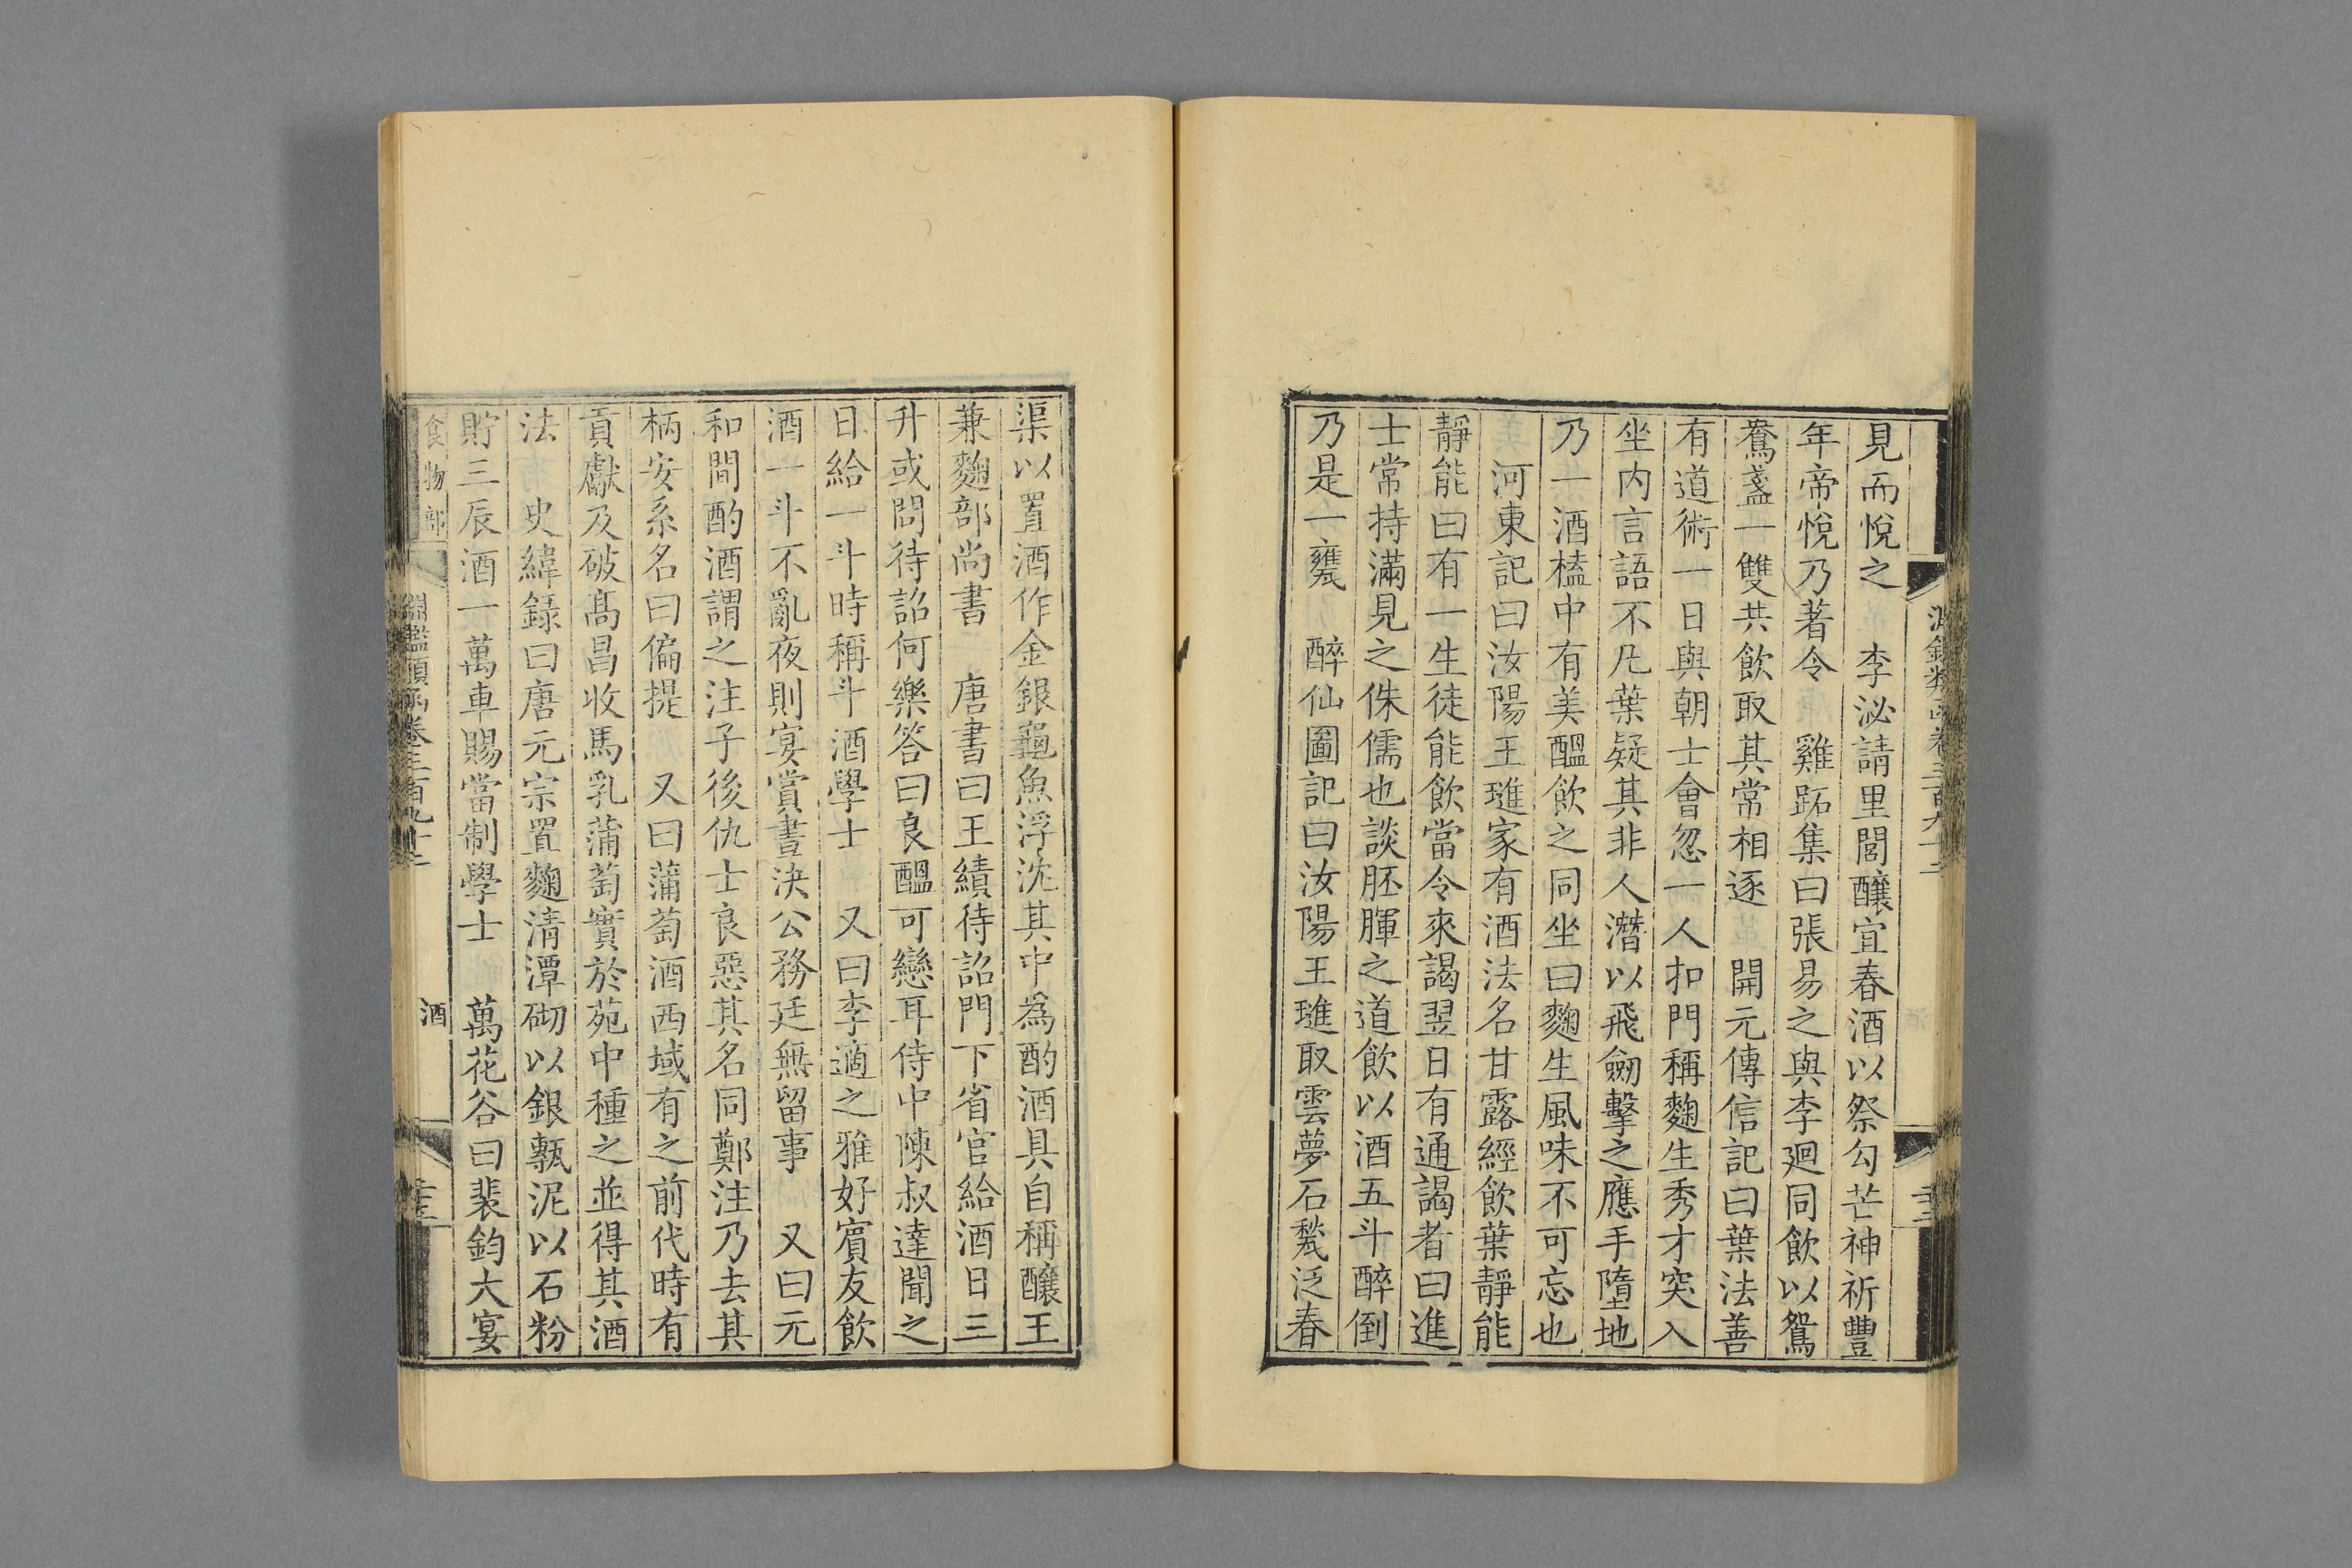 見而悅之　李泌請里閭釀宜春酒以祭勾芒神祈豐
年帝悅乃著令　雞跖集曰張易之與李迥同飲以鴛
鴦盞一雙共飲取其常相逐　開元傳信記曰葉法善
有道術一日與朝士會忽一人扣門稱麴生秀才突入
坐内言語不凡葉疑其非人潛以飛劒擊之應手墮地
乃一酒榼中有美醞飲之同坐曰麴生風味不可忘也
河東記曰汝陽王璡家有酒法名甘露經飲葉靜能
靜能曰有一生徒能飲當令來謁翌日有通謁者曰進
士常持滿見之侏儒也談胚腪之道飲以酒五斗醉倒
乃是一甕　醉仙圖記曰汝陽王璡取雲夢石甃泛春
渠以置酒作金銀龜魚浮沈其中爲酌酒具自稱釀王
兼麴部尚書　唐書曰王績待詔門下省官給酒日三
升或問待詔何樂答曰良醞可戀耳侍中陳叔達聞之
日給一斗時稱斗酒學士　又曰李適之雅好賓友飲
酒一斗不亂夜則宴賞晝決公務廷無留事　又曰元
和間酌酒謂之注子後仇士良惡其名同鄭注乃去其
柄安系名曰偏提　又曰蒲萄酒西域有之前代時有
貢獻及破髙昌收馬乳蒲萄實於苑中種之並得其酒
法　史緯録曰唐元宗置麴淸潭砌以銀甎泥以石粉
貯三辰酒一萬車賜當制學士　萬花谷曰裴鈞大宴
食物部
淵鑑類函卷三百九十二
酒